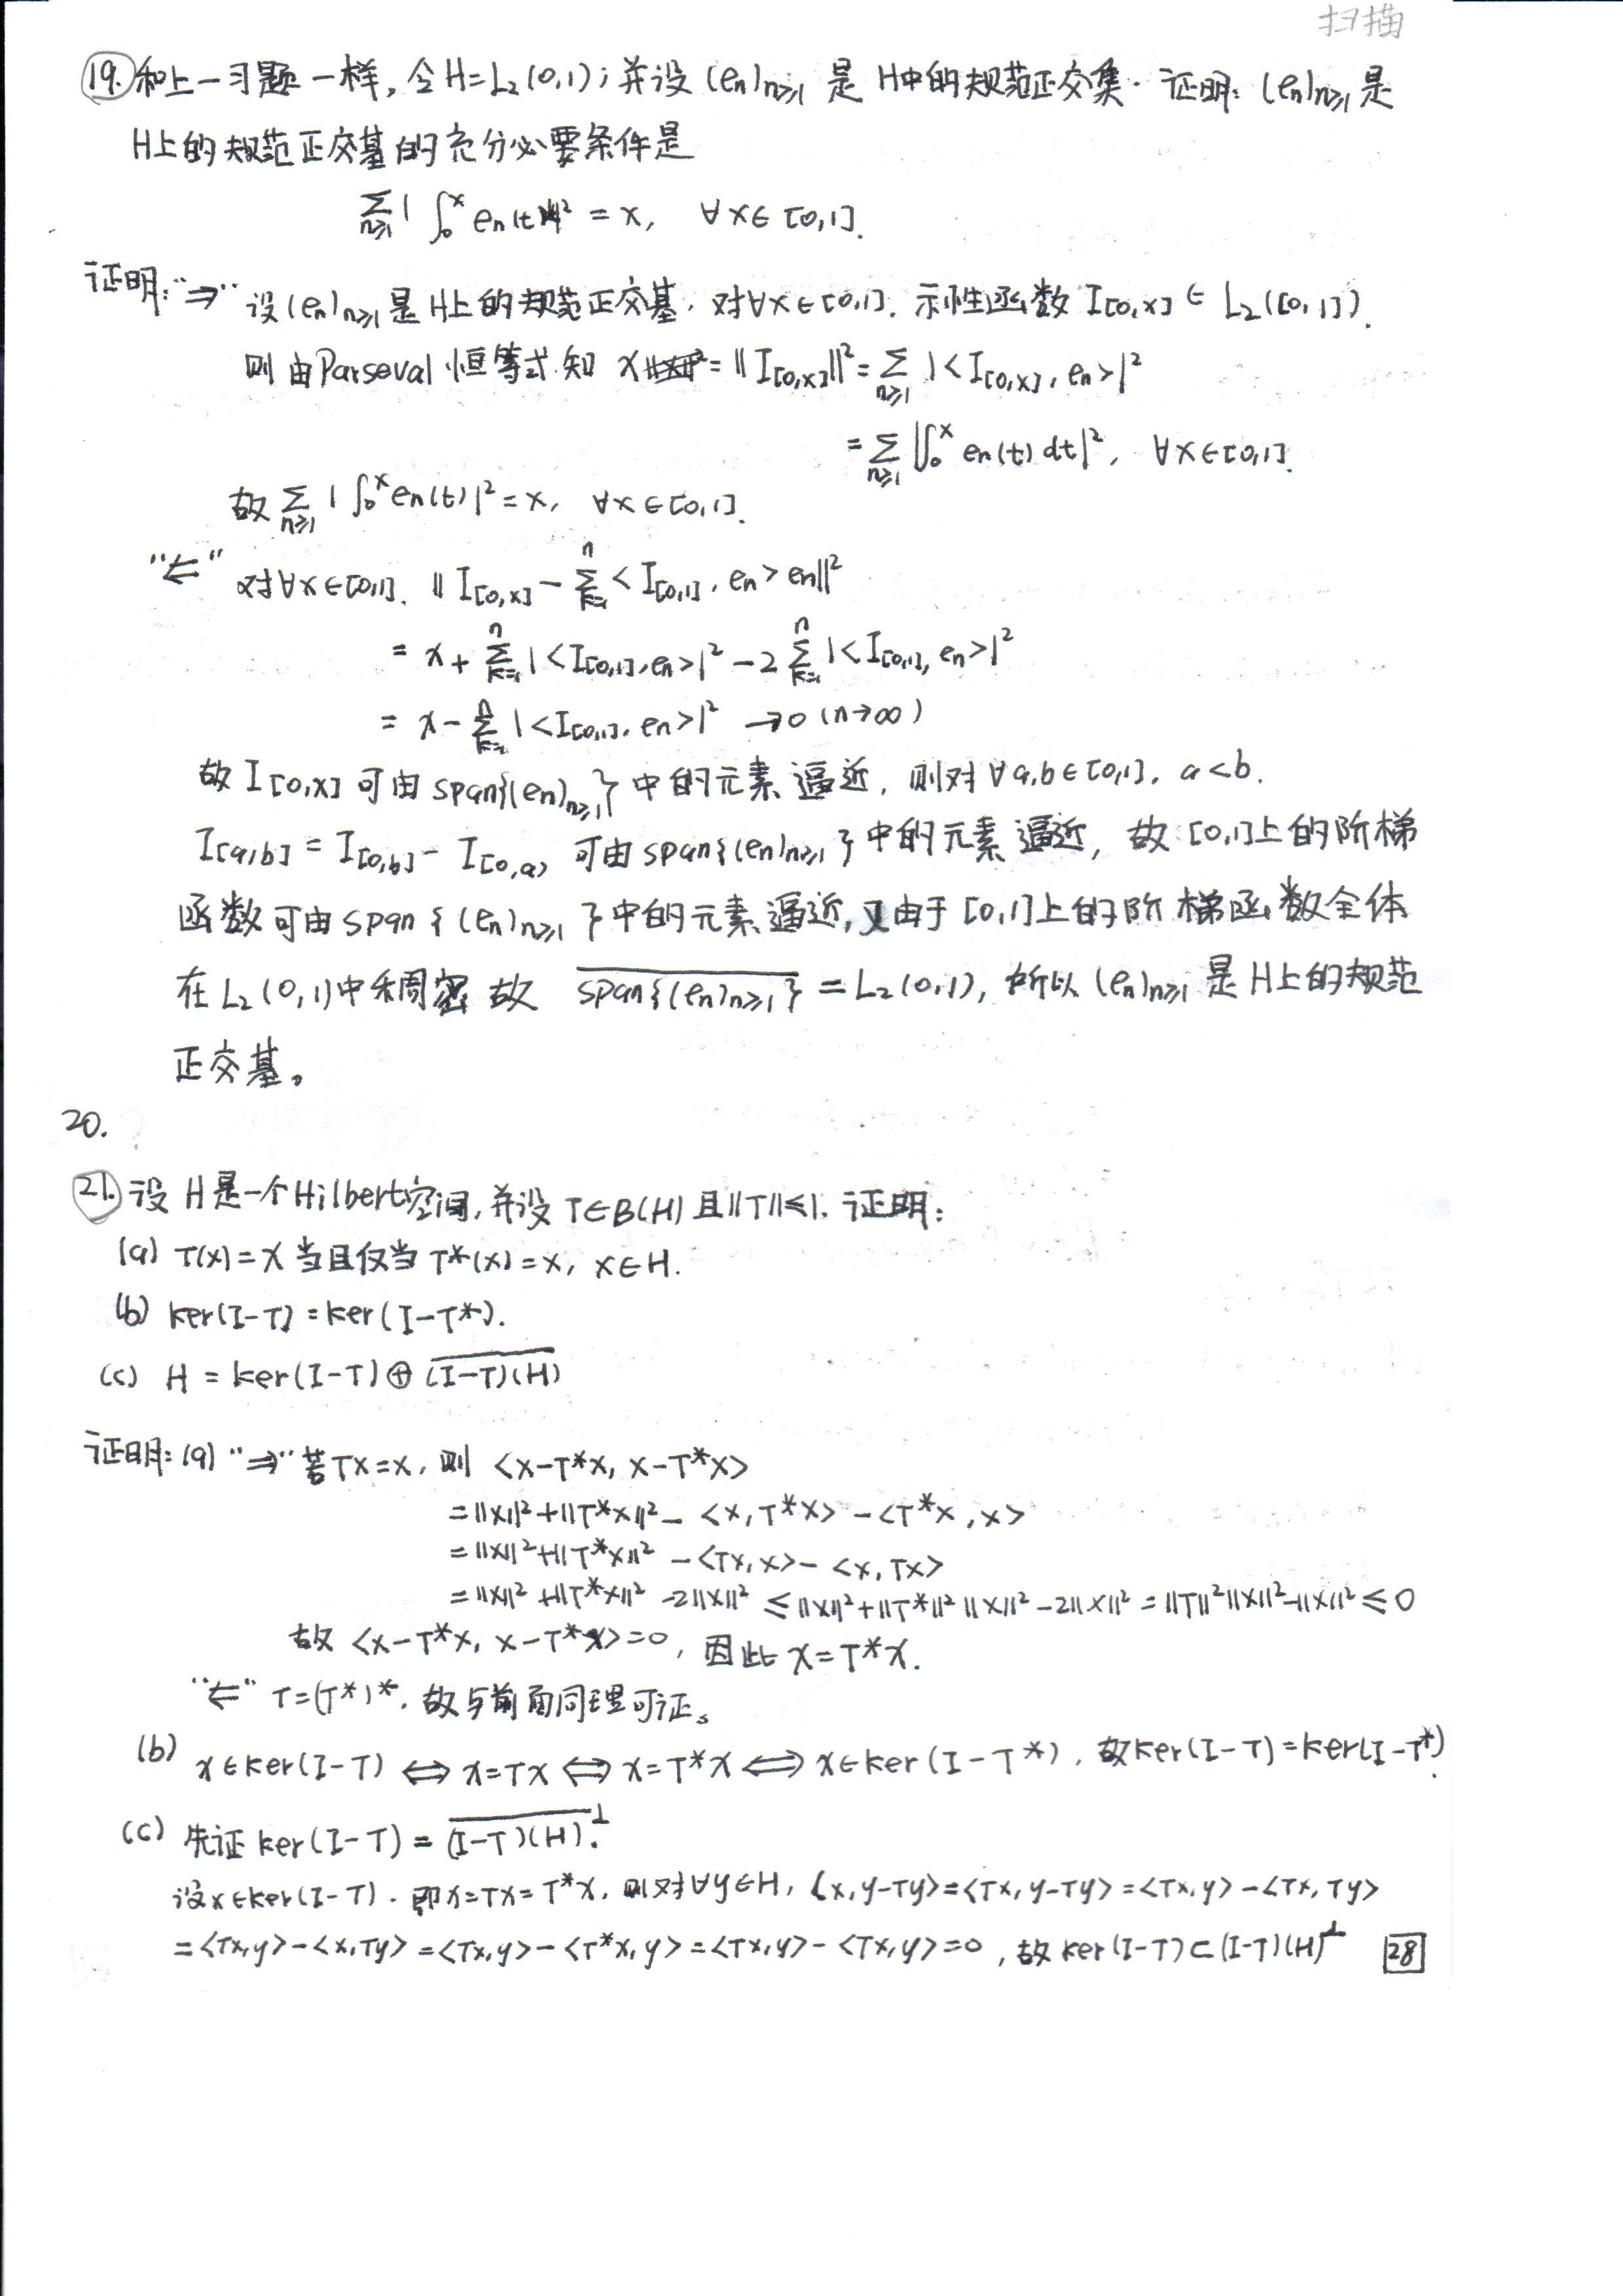 扫描
19. 和上一习题一样, 令 H=L₂(0,1); 并设 (eₙ)ₙ≥₁ 是 H中的规范正交集. 证明: (eₙ)ₙ≥₁ 是
H上的规范正交基的充分必要条件是
∑ₙ≥₁ | ∫₀ˣ eₙ(t)dt|² = x, ∀x∈[0,1].
证明: "⇒" 设 (eₙ)ₙ≥₁ 是H上的规范正交基. 对∀x∈[0,1]. 示性函数 I[0,x] ∈ L₂([0,1]).
则由Parseval恒等式知 x = ||I[0,x]||² = ∑ₙ≥₁ |<I[0,x], eₙ>|²
= ∑ₙ≥₁ |∫₀ˣ eₙ(t) dt|², ∀x∈[0,1].
故 ∑ₙ≥₁ | ∫₀ˣ eₙ(t)|² = x, ∀x∈[0,1].
"⇐" 对∀x∈[0,1]. || I[0,x] − ∑ₖ₌₁ⁿ < I[0,1], eₙ> eₙ||²
= x + ∑ₖ₌₁ⁿ |<I[0,1], eₙ>|² − 2 ∑ₖ₌₁ⁿ |<I[0,1], eₙ>|²
= x − ∑ₖ₌₁ⁿ |<I[0,1], eₙ>|² → 0 (n→∞)
故 I[0,x] 可由 span{(eₙ)ₙ≥₁} 中的元素逼近, 则对 ∀a,b∈[0,1], a<b.
I[a,b] = I[0,b] − I[0,a) 可由 span{(eₙ)ₙ≥₁} 中的元素逼近, 故 [0,1]上的阶梯
函数可由 span {(eₙ)ₙ≥₁} 中的元素逼近, 又由于 [0,1]上的阶梯函数全体
在 L₂(0,1)中稠密 故 \overline{span{(eₙ)ₙ≥₁}} = L₂(0,1), 所以 (eₙ)ₙ≥₁ 是H上的规范
正交基。
20.
21. 设 H是一个Hilbert空间, 并设 T∈B(H) 且||T||≤1. 证明:
(a) T(x)=x 当且仅当 T*(x)=x, x∈H.
(b) ker(I−T)=ker(I−T*).
(c) H = ker(I−T)⊕\overline{(I−T)(H)}
证明: (a) "⇒" 若Tx=x, 则 <x−T*x, x−T*x>
= ||x||²+||T*x||² − <x,T*x> − <T*x, x>
= ||x||²+||T*x||² − <Tx,x> − <x,Tx>
= ||x||²+||T*x||² −2||x||² ≤ ||x||²+||T*||²||x||²−2||x||² = ||T||²||x||²−||x||² ≤ 0
故 <x−T*x, x−T*x>=0, 因此 x=T*x.
"⇐" T=(T*)*, 故与前面同理可证。
(b) x∈ker(I−T) ⇔ x=Tx ⇔ x=T*x ⇔ x∈ker(I−T*), 故ker(I−T)=ker(I−T*).
(c) 先证 ker(I−T) = \overline{(I−T)(H)}^⊥.
设x∈ker(I−T). 即x=Tx=T*x, 则对∀y∈H, <x,y−Ty>=<Tx,y−Ty>=<Tx,y>−<Tx,Ty>
=<Tx,y>−<x,Ty> =<Tx,y>−<T*x,y>=<Tx,y>−<Tx,y>=0, 故 ker(I−T)⊂(I−T)(H)^⊥ 28